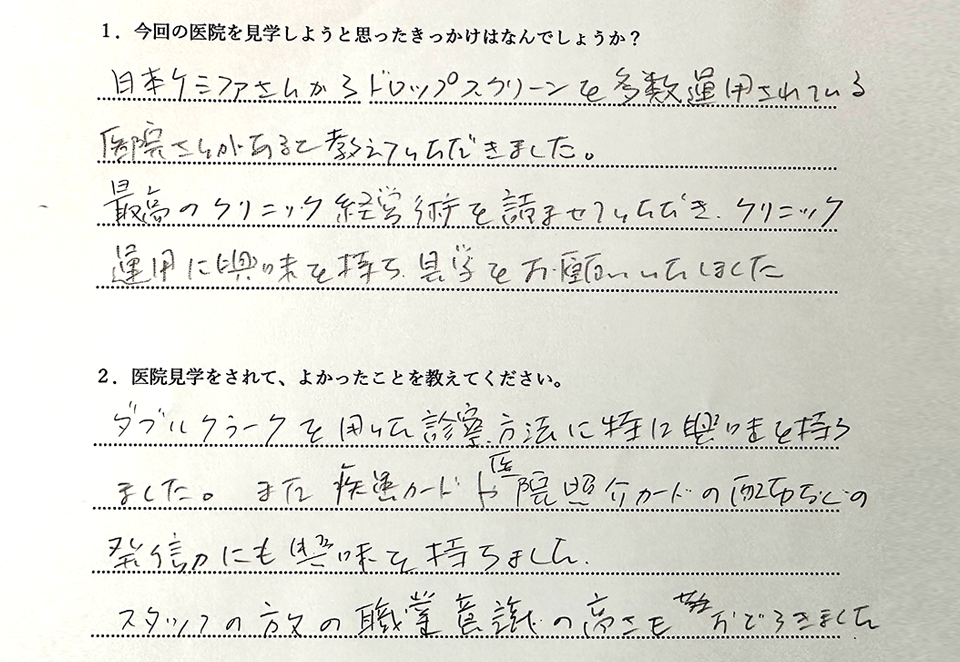 1. 今回の医院を見学しようと思ったきっかけはなんでしょうか？
日本ケミファさんからドロップスクリーンを多数運用されている
医院さんがあると教えていただきました。
最高のクリニック経営術を読ませていただき、クリニック
運用に興味を持ち、見学をお願いいたしました
2. 医院見学をされて、よかったことを教えてください。
ダブルクラークを用いた診察方法に特に興味を持ち
ました。また疾患カードや医院照介カードの配布などの
発信力にも興味を持ちました。
スタッフの方の職業意識の高さも おどろきました